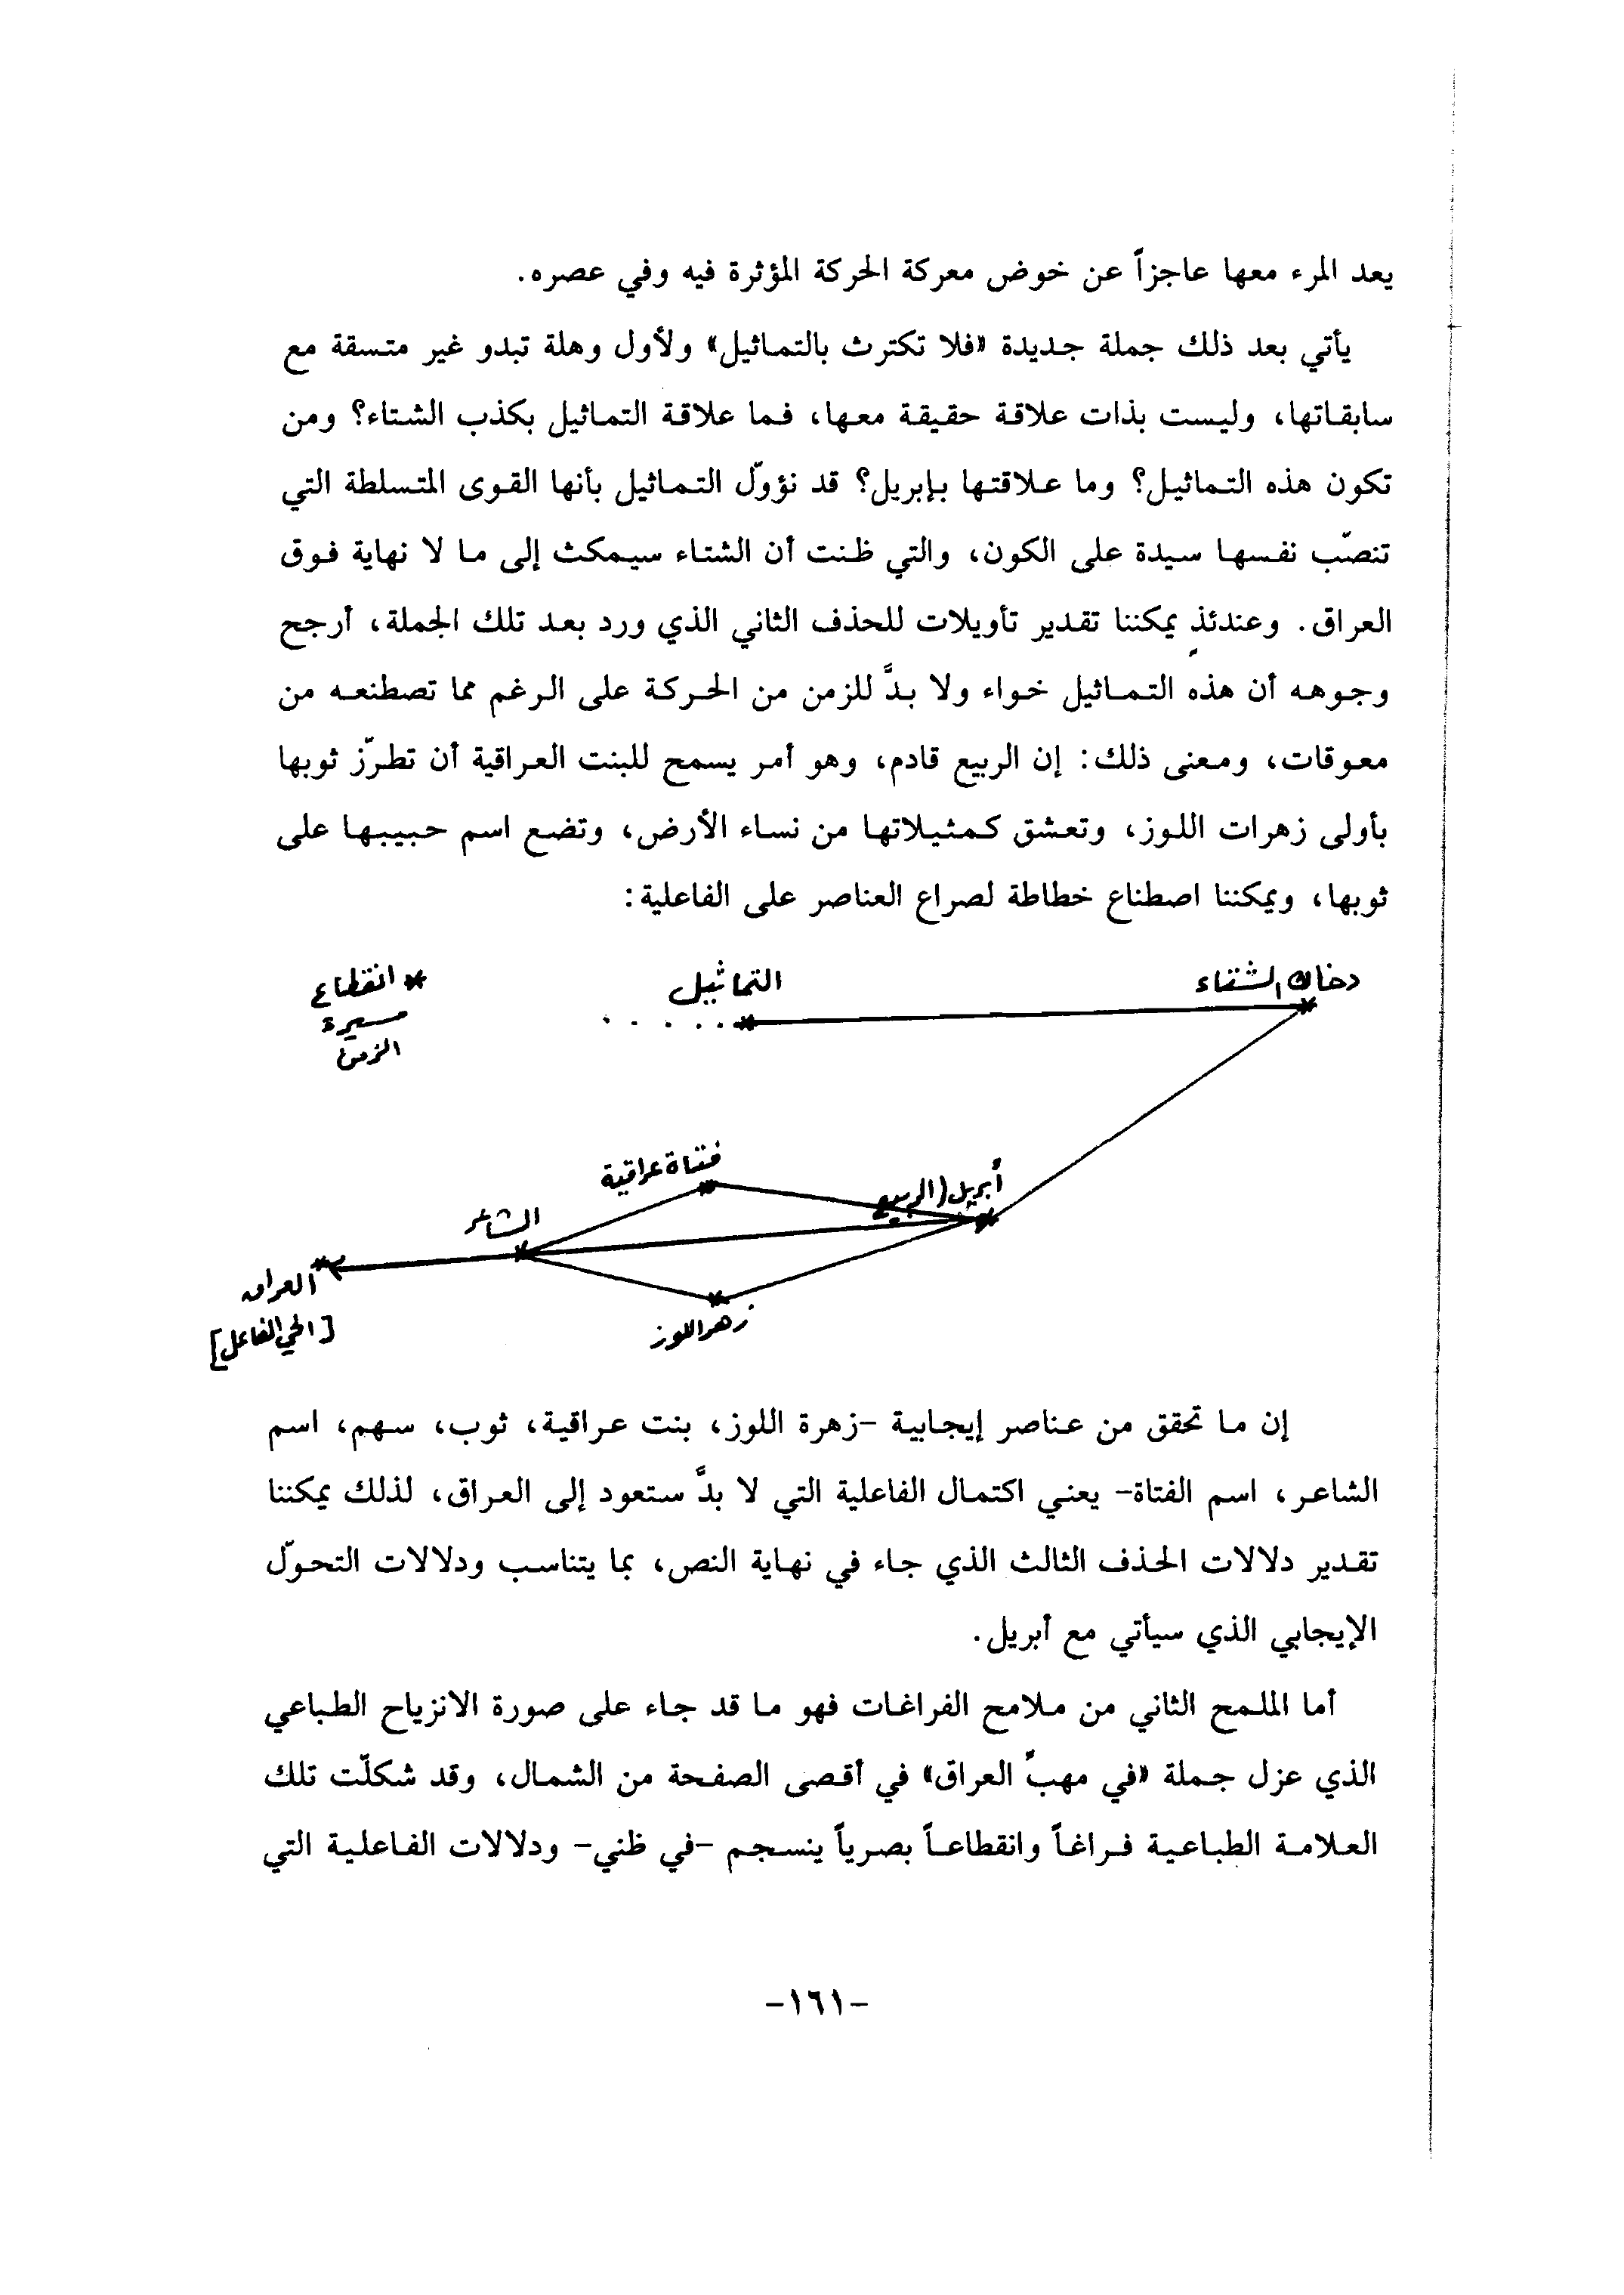 يعد المرء معها عاجزاً عن خوض معركة الحركة المؤثرة فيه وفي عصره.
يأتي بعد ذلك جملة جديدة «فلا تكترث بالتماثيل» ولأول وهلة تبدو غير متسقة مع
سابقاتها، وليست بذات علاقة حقيقة معها، فما علاقة التماثيل بكذب الشتاء؟ ومن
تكون هذه التماثيل؟ وما علاقتها بإبريل؟ قد نؤوّل التماثيل بأنها القوى المتسلطة التي
تنصّب نفسها سيدة على الكون، والتي ظنت أن الشتاء سيمكث إلى ما لا نهاية فوق
العراق. وعندئذٍ يمكننا تقدير تأويلات للحذف الثاني الذي ورد بعد تلك الجملة، أرجح
وجوهه أن هذه التماثيل خواء ولا بدَّ للزمن من الحركة على الرغم مما تصطنعه من
معوقات، ومعنى ذلك: إن الربيع قادم، وهو أمر يسمح للبنت العراقية أن تطرّز ثوبها
بأولى زهرات اللوز، وتعشق كمثيلاتها من نساء الأرض، وتضع اسم حبيبها على
ثوبها، ويمكننا اصطناع خطاطة لصراع العناصر على الفاعلية:
دخان الشتاء
التماثيل
* انقطاع
مسيرة
الزمن
فتاة عراقية
أبريل (الربيع
الشاعر
العراق
[الحي الفاعل]
زهر اللوز
إن ما تحقق من عناصر إيجابية -زهرة اللوز، بنت عراقية، ثوب، سهم، اسم
الشاعر، اسم الفتاة- يعني اكتمال الفاعلية التي لا بدَّ ستعود إلى العراق، لذلك يمكننا
تقدير دلالات الحذف الثالث الذي جاء في نهاية النص، بما يتناسب ودلالات التحوّل
الإيجابي الذي سيأتي مع أبريل.
أما الملمح الثاني من ملامح الفراغات فهو ما قد جاء على صورة الانزياح الطباعي
الذي عزل جملة «في مهبِّ العراق» في أقصى الصفحة من الشمال، وقد شكلّت تلك
العلامة الطباعية فراغاً وانقطاعاً بصرياً ينسجم -في ظني- ودلالات الفاعلية التي
-١٦١-